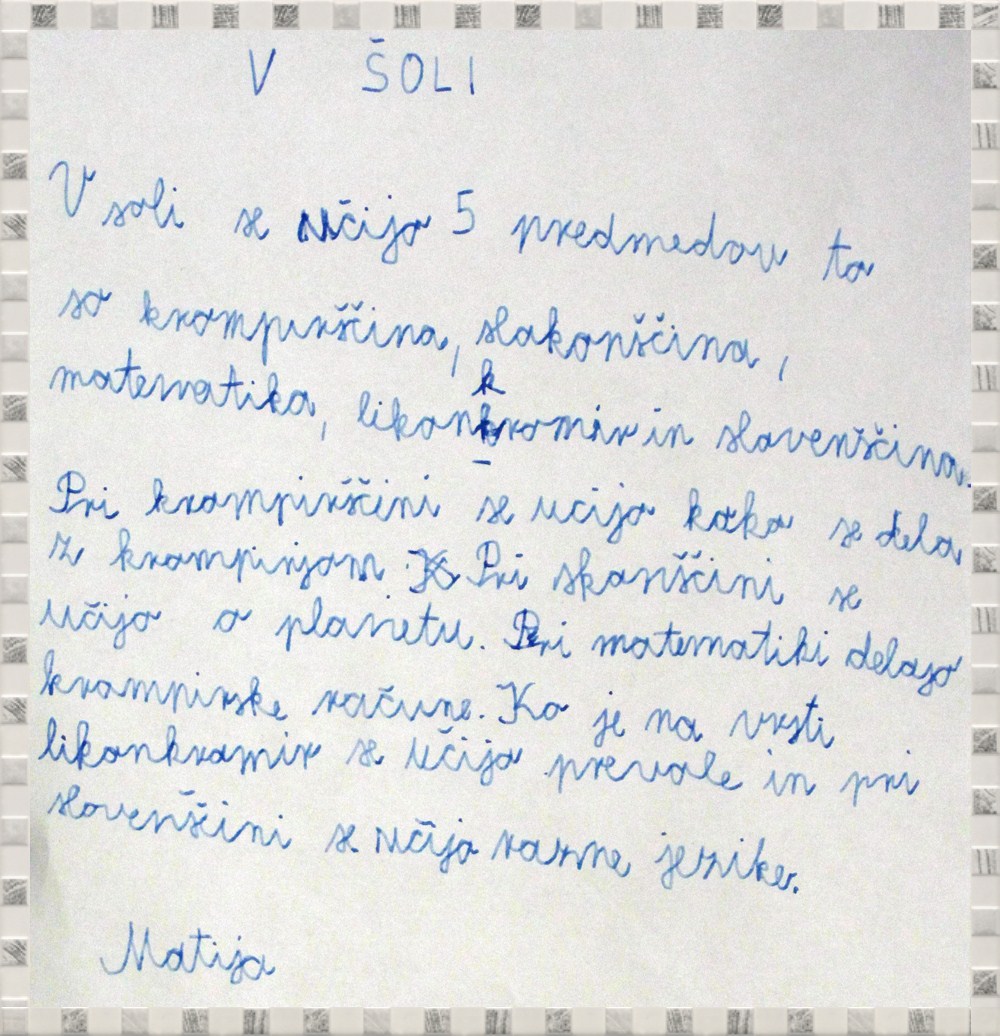 V ŠOLI
V soli se učijo 5 predmedov to
so krompirščina, slakonščina,
matematika, likonkromir in slovenščina.
Pri krompirščini se ucijo kako se dela
z krompirjom Pri skonščini se
učijo o planetu. Pri matematiki delajo
krompirske račune. Ko je na vrsti
likonkromir se učijo prevole in pri
slovenščini se učijo razne jezike.
Matija